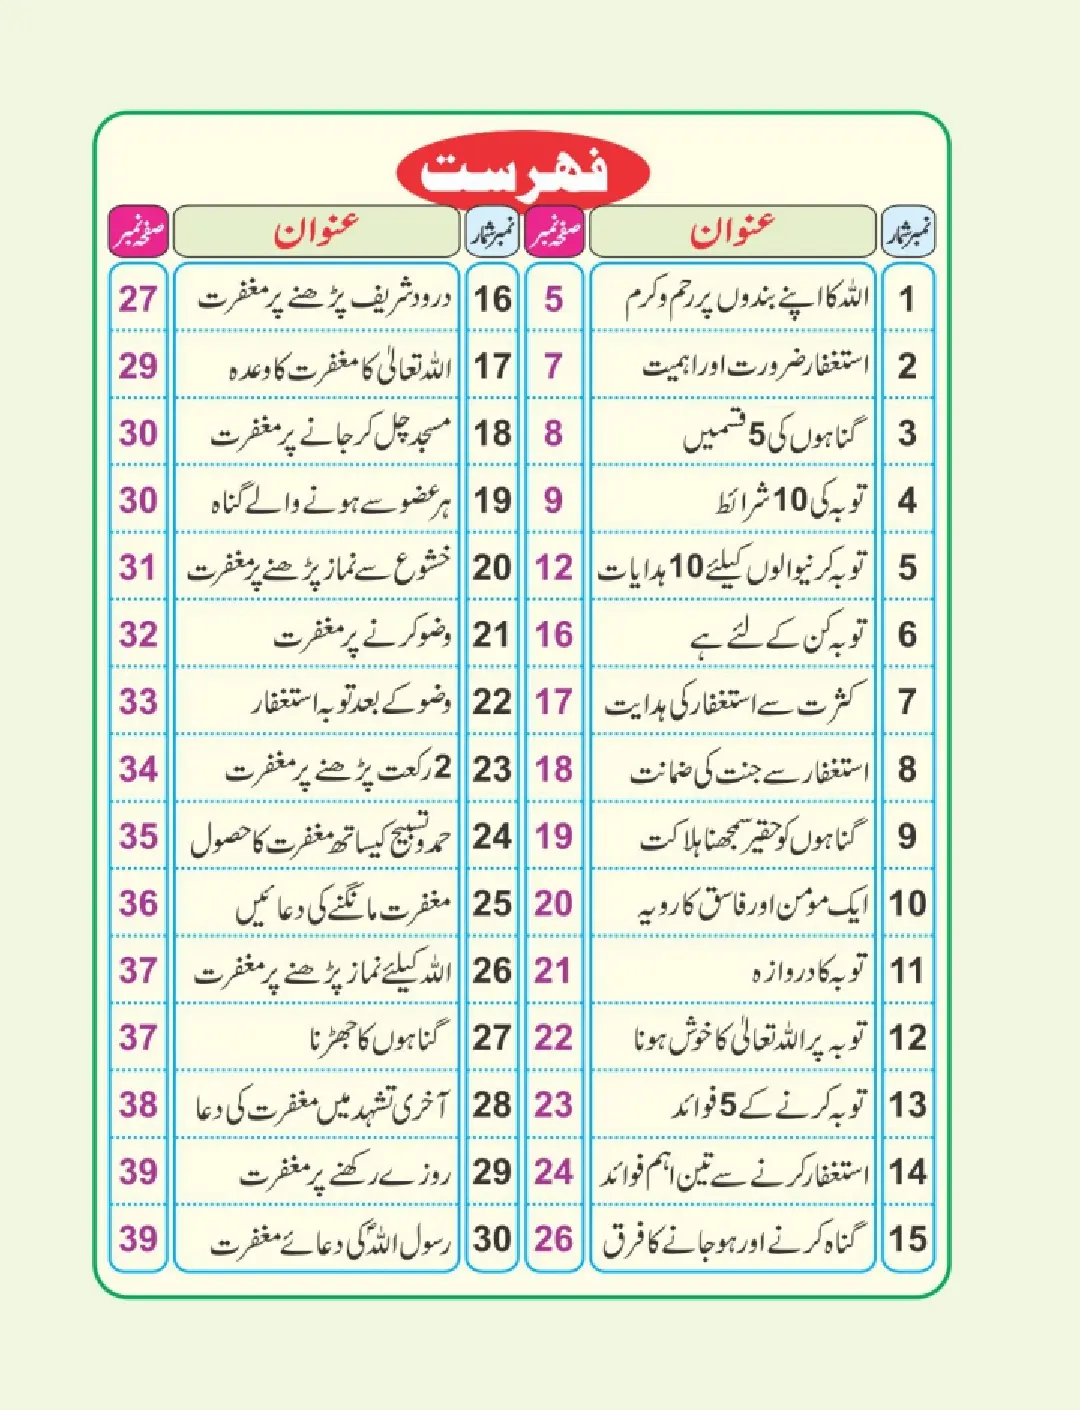 فہرست
نمبر شمار عنوان صفحہ نمبر
1 اللہ کا اپنے بندوں پر رحم و کرم 5
2 استغفار ضرورت اور اہمیت 7
3 گناہوں کی 5 قسمیں 8
4 توبہ کی 10 شرائط 9
5 توبہ کرنیوالوں کیلئے 10 ہدایات 12
6 توبہ کن کے لئے ہے 16
7 کثرت سے استغفار کی ہدایت 17
8 استغفار سے جنت کی ضمانت 18
9 گناہوں کو حقیر سمجھنا ہلاکت 19
10 ایک مومن اور فاسق کا رویہ 20
11 توبہ کا دروازہ 21
12 توبہ پر اللہ تعالیٰ کا خوش ہونا 22
13 توبہ کرنے کے 5 فوائد 23
14 استغفار کرنے سے تین اہم فوائد 24
15 گناہ کرنے اور ہو جانے کا فرق 26
نمبر شمار عنوان صفحہ نمبر
16 درود شریف پڑھنے پر مغفرت 27
17 اللہ تعالیٰ کا مغفرت کا وعدہ 29
18 مسجد چل کر جانے پر مغفرت 30
19 ہر عضو سے ہونے والے گناہ 30
20 خشوع سے نماز پڑھنے پر مغفرت 31
21 وضو کرنے پر مغفرت 32
22 وضو کے بعد توبہ استغفار 33
23 2 رکعت پڑھنے پر مغفرت 34
24 حمد و تسبیح کیساتھ مغفرت کا حصول 35
25 مغفرت مانگنے کی دعائیں 36
26 اللہ کیلئے نماز پڑھنے پر مغفرت 37
27 گناہوں کا جھڑنا 37
28 آخری تشہد میں مغفرت کی دعا 38
29 روزے رکھنے پر مغفرت 39
30 رسول اللہؐ کی دعائے مغفرت 39